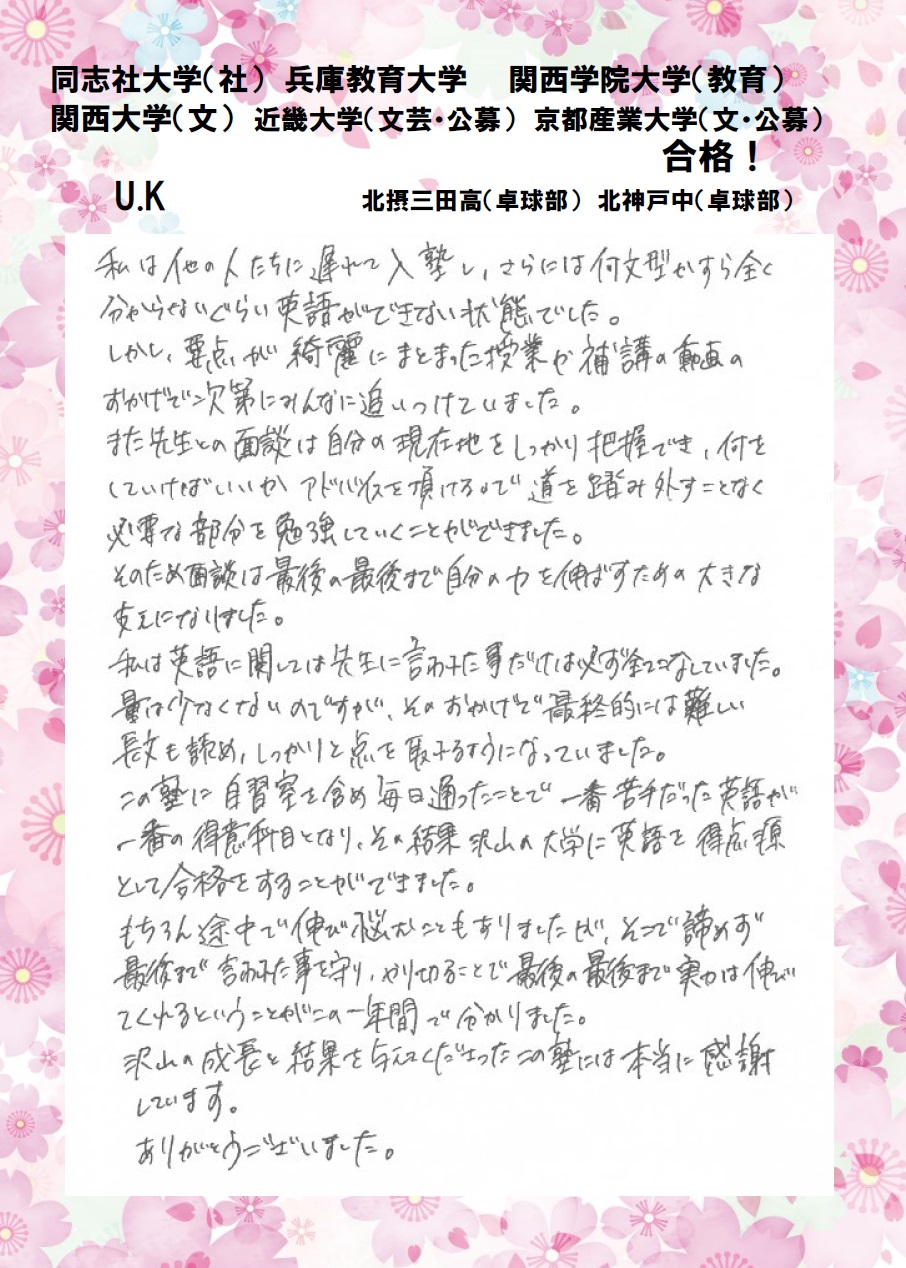 同志社大学（社） 兵庫教育大学 関西学院大学（教育）
関西大学（文） 近畿大学（文芸・公募） 京都産業大学（文・公募）
合格！
U.K 北摂三田高（卓球部） 北神戸中（卓球部）
私は他の人たちに遅れて入塾し、さらには何文型かすら全く
分からないぐらい英語ができない状態でした。
しかし、要点が綺麗にまとまった授業や補講の動画の
おかげで次第にみんなに追いつけていました。
また先生との面談は自分の現在地をしっかり把握でき、何を
していけばいいかアドバイスを頂けるので道を踏み外すことなく
必要な部分を勉強していくことができました。
そのため面談は最後の最後まで自分の力を伸ばすための大きな
支えになりました。
私は英語に関しては先生に言われた事だけは必ず全てこなしていました。
量は少なくないのですが、そのおかげで最終的には難しい
長文も読め、しっかりと点を取れるようになっていました。
この塾に自習室を含め毎日通ったことで一番苦手だった英語が
一番の得意科目となり、その結果沢山の大学に英語を得点源
として合格をすることができました。
もちろん途中で伸び悩むこともありましたが、そこで諦めず
最後まで言われた事を守り、やり切ることで最後の最後まで実力は伸び
てくれるということがこの一年間で分かりました。
沢山の成長と結果を与えてくださったこの塾には本当に感謝
しています。
ありがとうございました。